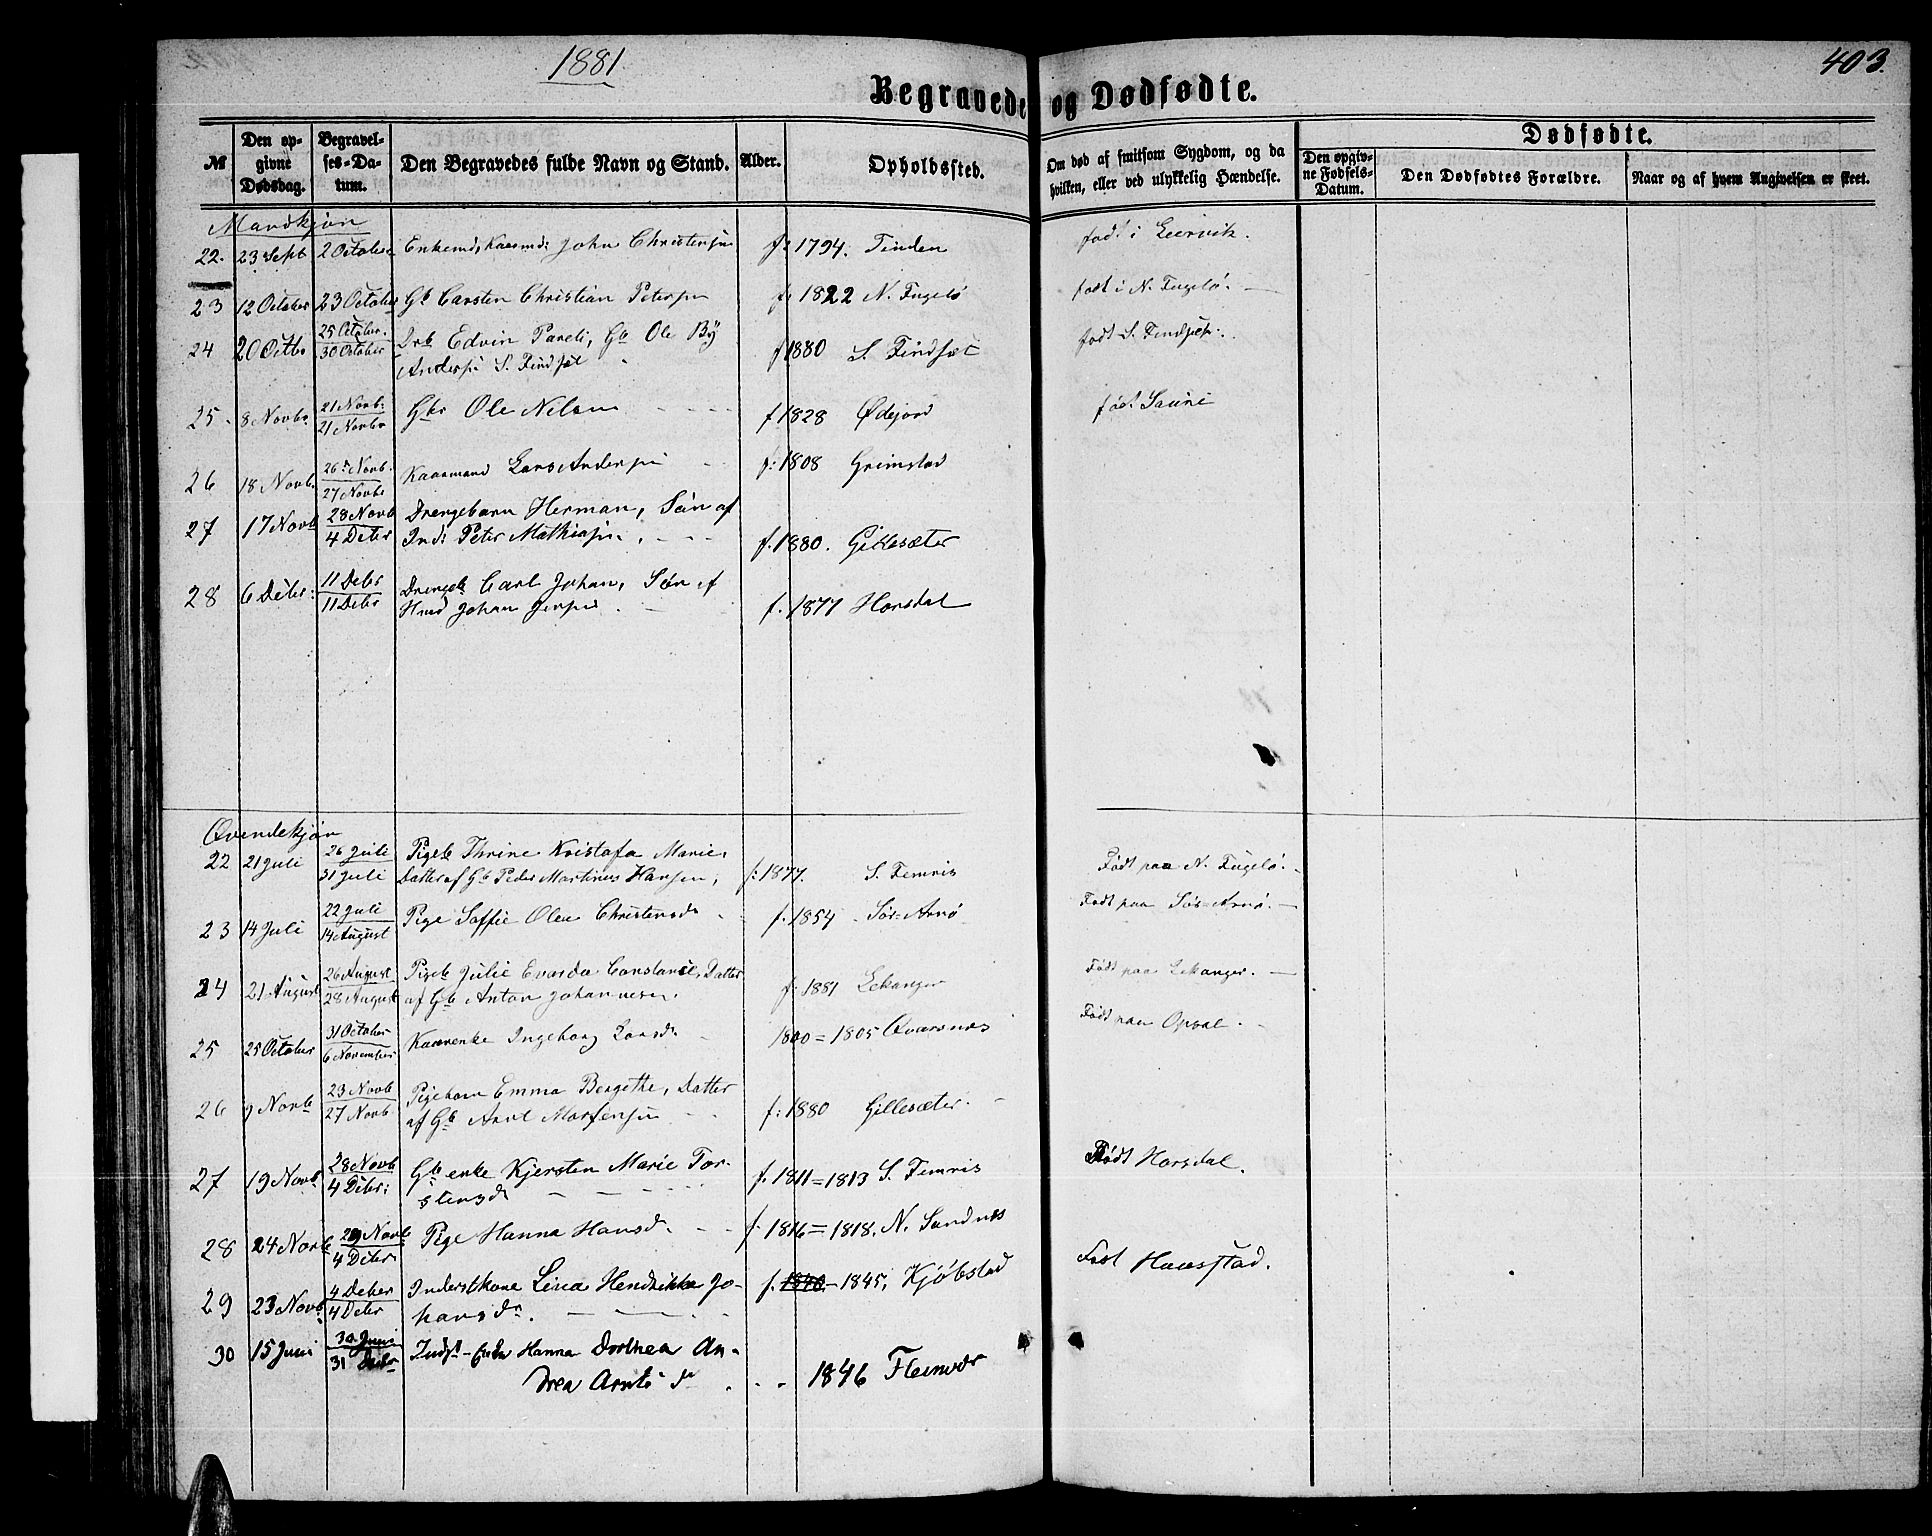 1881
403.
Begravede og Dødfødte.
№
Den opgivne Dødsdag.
Begravelses-Datum.
Den Begravedes fulde Navn og Stand.
Alder.
Opholdssted.
Om død af smitsom Sygdom, og da hvilken, eller ved ulykkelig Hændelse.
Dødfødte.
Den opgivne Fødsels-Datum.
Den Dødfødtes Forældre.
Naar og af hvem Angivelsen er skeet.
Mandkjøn
22. 23 Sept 2 October Enkemd, Kaarmd: John Christensen f: 1794. Tinden født i Leervik.
23 12 October 23 October Gb Carsten Christian Petersen f: 1822 N. Fugelø født i N. Fugelø.
24 20 Octbr 25 October 30 October Drb Edvin Pareli, Gb Ole By f 1880 S. Findset født S. Findset.
Andersen S. Findset
25. 8 Novbr 21 Novb: 21 Novbr Gbr Ole Nilsen f 1828 Ødejord født
26 18 Novb. 26 Novb. 27 Novbr Kaarmand Lars Andersen f: 1808 Grimstad
27 17 Novb 28 Novb 4 Debr Drengebarn Herman, Søn af
Ind: Peter Mathiasen. f. 1880. Gillesæter
28 6 Debr: 11 Debr 11 Debr Drengeb Carl Johan, Søn af
Hmd Johan Jensen. f. 1877 Horsdal
Qvindekjøn
22 21 Juli 26 Juli 31 Juli Pigeb Thrine Kristofa Marie,
Datter af Gb Peder Martinus Hansen, f: 1877. S. Femris Født paa N. Fugelø.
23 14 Juli 22 Juli 14 August Pige Soffie Olea Christensd. f. 1854 Sør-Arnø Født paa Sør-Arnø.
24 21 August 26 August 28 August Pigeb Julie Evarda Constance, Datter
af Gb Anton Johannesen. f: 1881 Lekanger Født paa Lekanger.
25 25 October 31 October 6 November Kaarenke Ingeborg Larsd. 1800 = 1805 Qvarsnes Født paa Opsal.
26 9 Novb 23 Novb 27 Novb Pigebarn Emma Bergethe, Datter
af Gb Arnt Mortensen f: 1880 Gillesæter.
27 19 Novb. 28 Novb 4 Debr: Gb enke Kjersten Marie Tor-
stensd f. 1811 = 1813 S. Femris Født Horsdal.
28 24 Novb 29 Novb 4 Debr Pige Hanna Hansd. f. 1816 = 1818. N. Sandnes
29 23 Novb. 4 Debr 4 Debr Inderstkone Lina Hendrikke Jo-
hansdr. f. 1840 - 1845, Kjøbstad Født Haasstad.
30 15 Juni 30 Juni 31 Debr Indst- Hanna Dorthea An-
drea Arnts dr 1846 Fleinvær